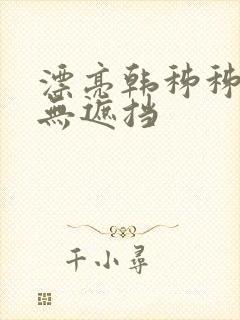 漂亮韩秭秭
無遮挡
千小尋